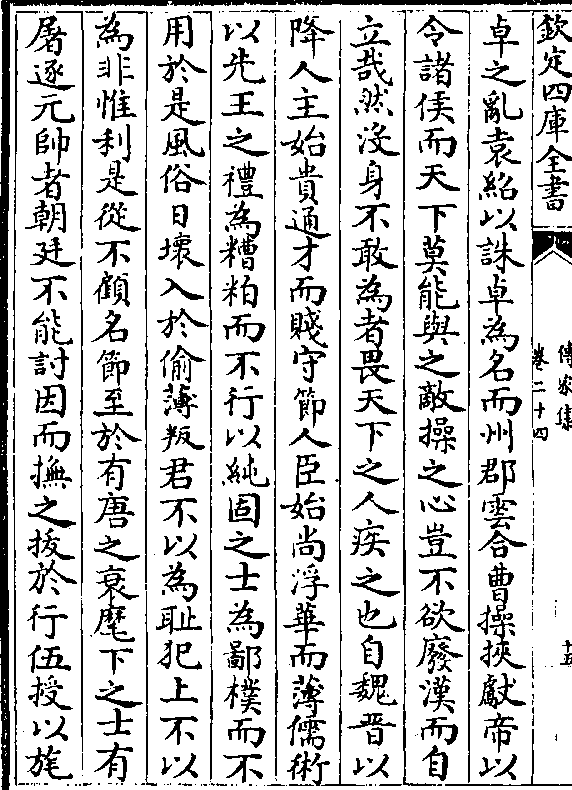 欽定四庫全書
傳家集
卷二十四
十五
卓之亂袁紹以誅卓為名而州郡雲合曹操挾獻帝以
令諸侯而天下莫能與之敵操之心豈不欲廢漢而自
立哉然沒身不敢為者畏天下之人疾之也自魏晉以
降人主始貴通才而賤守節人臣始尚浮華而薄儒術
以先王之禮為糟粕而不行以純固之士為鄙樸而不
用於是風俗日壞入於偷薄叛君不以為恥犯上不以
為非惟利是從不顧名節至於有唐之衰麾下之士有
屠逐元帥者朝廷不能討因而撫之拔於行伍授以旄